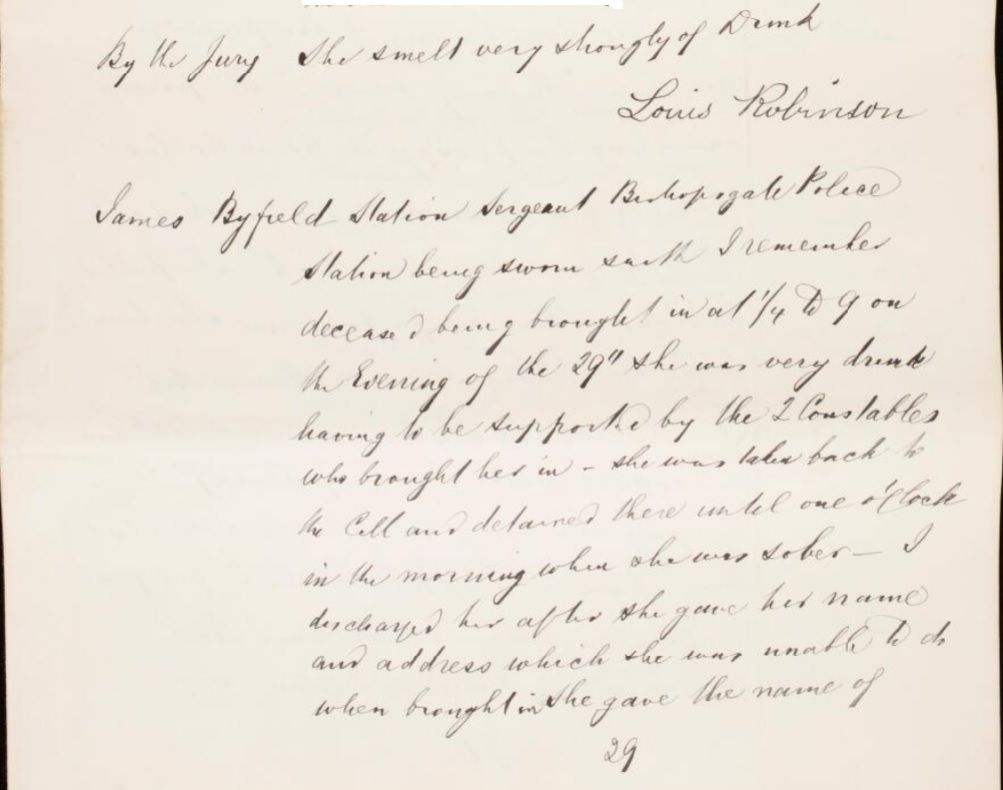 By the Jury She smelt very strongly of Drink
Louis Robinson
James Byfield Station Sergeant Bishopsgate Police
Station being sworn saith I remember
deceased being brought in at 1/4 to 9 on
the Evening of the 29" she was very drunk
having to be supported by the 2 Constables
who brought her in - she was taken back to
the Cell and detained there until one o'Clock
in the morning when she was sober — I
discharged her after she gave her name
and address which she was unable to do
when brought in She gave the name of
29